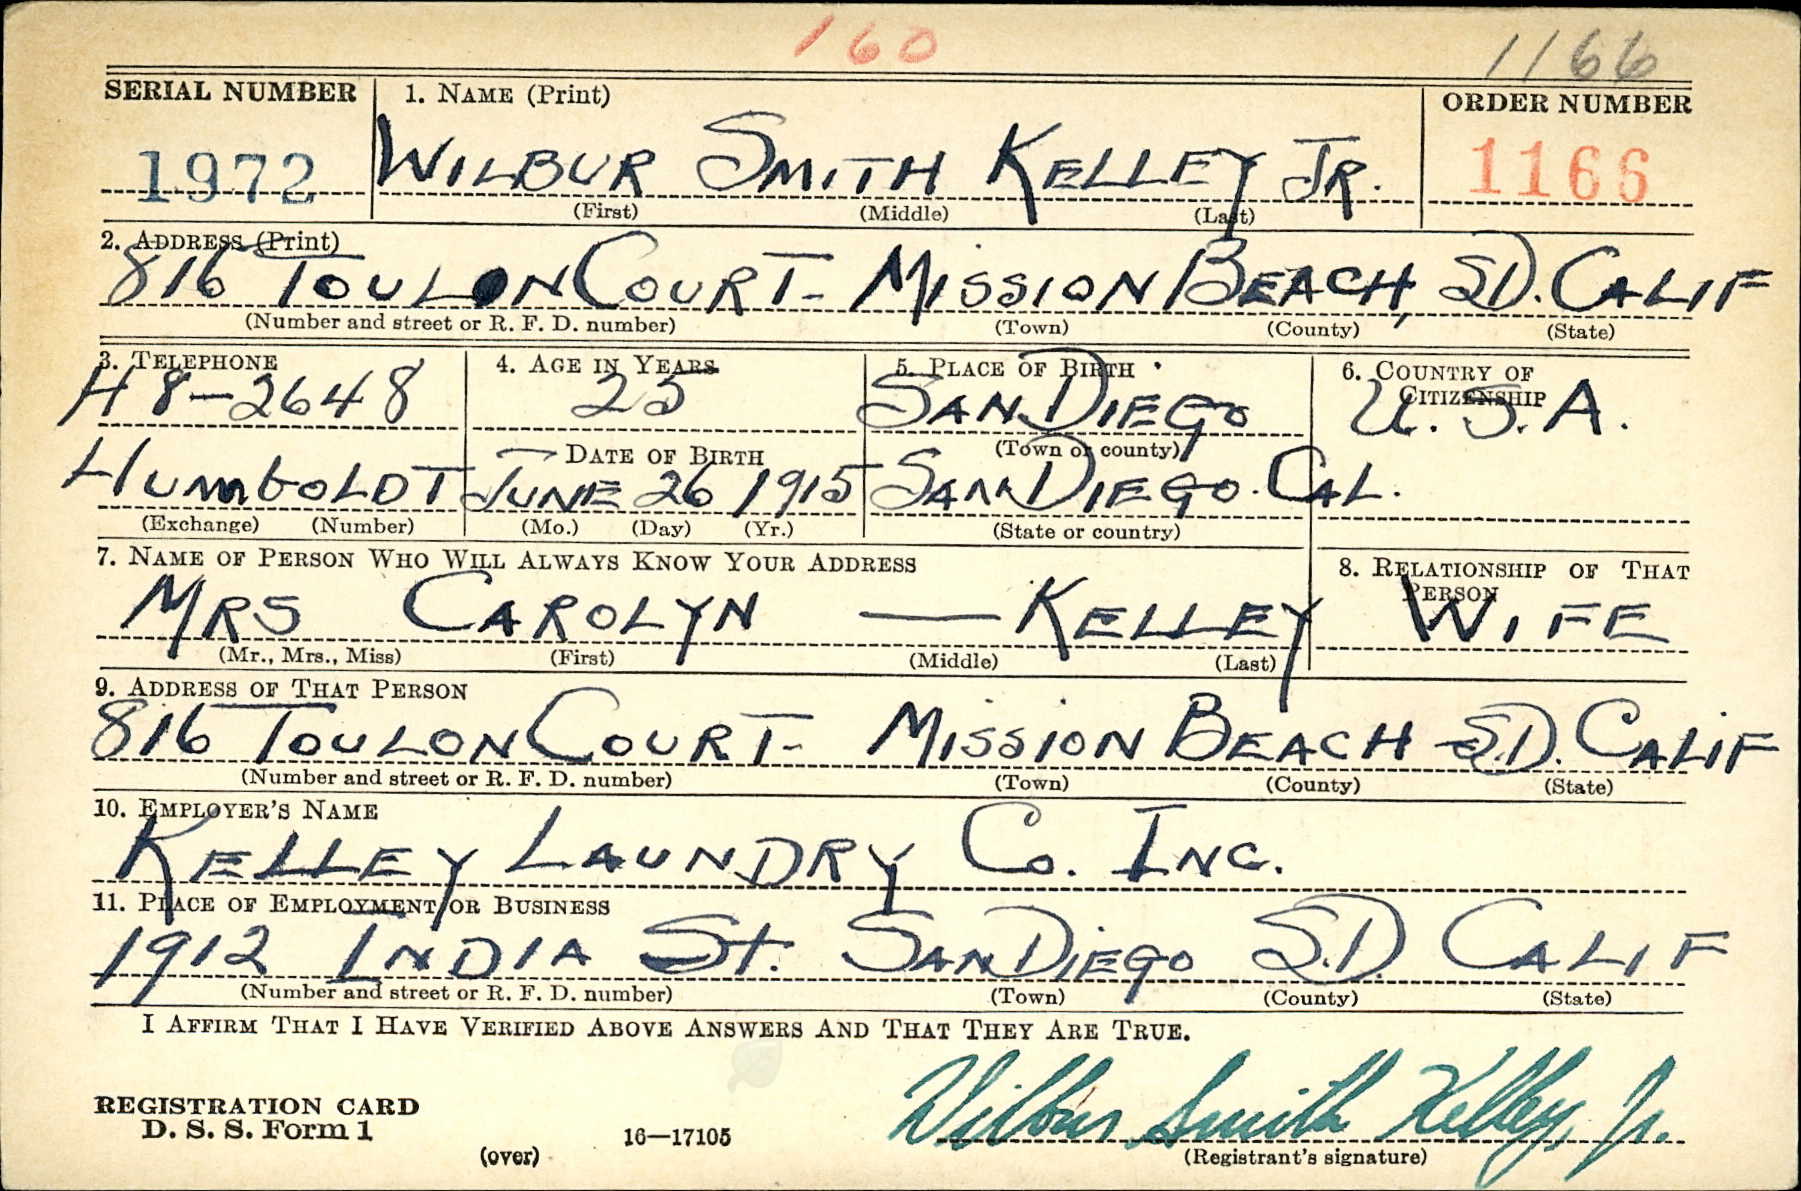 160
1166
SERIAL NUMBER 1. NAME (Print) ORDER NUMBER
1972 WILBUR SMITH KELLEY JR. 1166
(First) (Middle) (Last)
2. ADDRESS (Print)
816 TOULON COURT- MISSION BEACH, S.D. CALIF
(Number and street or R. F. D. number) (Town) (County) (State)
3. TELEPHONE 4. AGE IN YEARS 5. PLACE OF BIRTH 6. COUNTRY OF
CITIZENSHIP
H8-2648 25 SAN DIEGO U.S.A.
DATE OF BIRTH (Town or county)
HUMBOLDT JUNE 26 1915 SAN DIEGO. CAL.
(Exchange) (Number) (Mo.) (Day) (Yr.) (State or country)
7. NAME OF PERSON WHO WILL ALWAYS KNOW YOUR ADDRESS 8. RELATIONSHIP OF THAT
PERSON
MRS CAROLYN — KELLEY WIFE
(Mr., Mrs., Miss) (First) (Middle) (Last)
9. ADDRESS OF THAT PERSON
816 TOULON COURT- MISSION BEACH S.D. CALIF
(Number and street or R. F. D. number) (Town) (County) (State)
10. EMPLOYER'S NAME
KELLEY LAUNDRY CO. INC.
11. PLACE OF EMPLOYMENT OR BUSINESS
1912 INDIA St. SAN DIEGO S.D. CALIF
(Number and street or R. F. D. number) (Town) (County) (State)
I AFFIRM THAT I HAVE VERIFIED ABOVE ANSWERS AND THAT THEY ARE TRUE.
REGISTRATION CARD
D. S. S. Form 1
Wilbur Smith Kelley, Jr.
(over) 16—17105 (Registrant's signature)